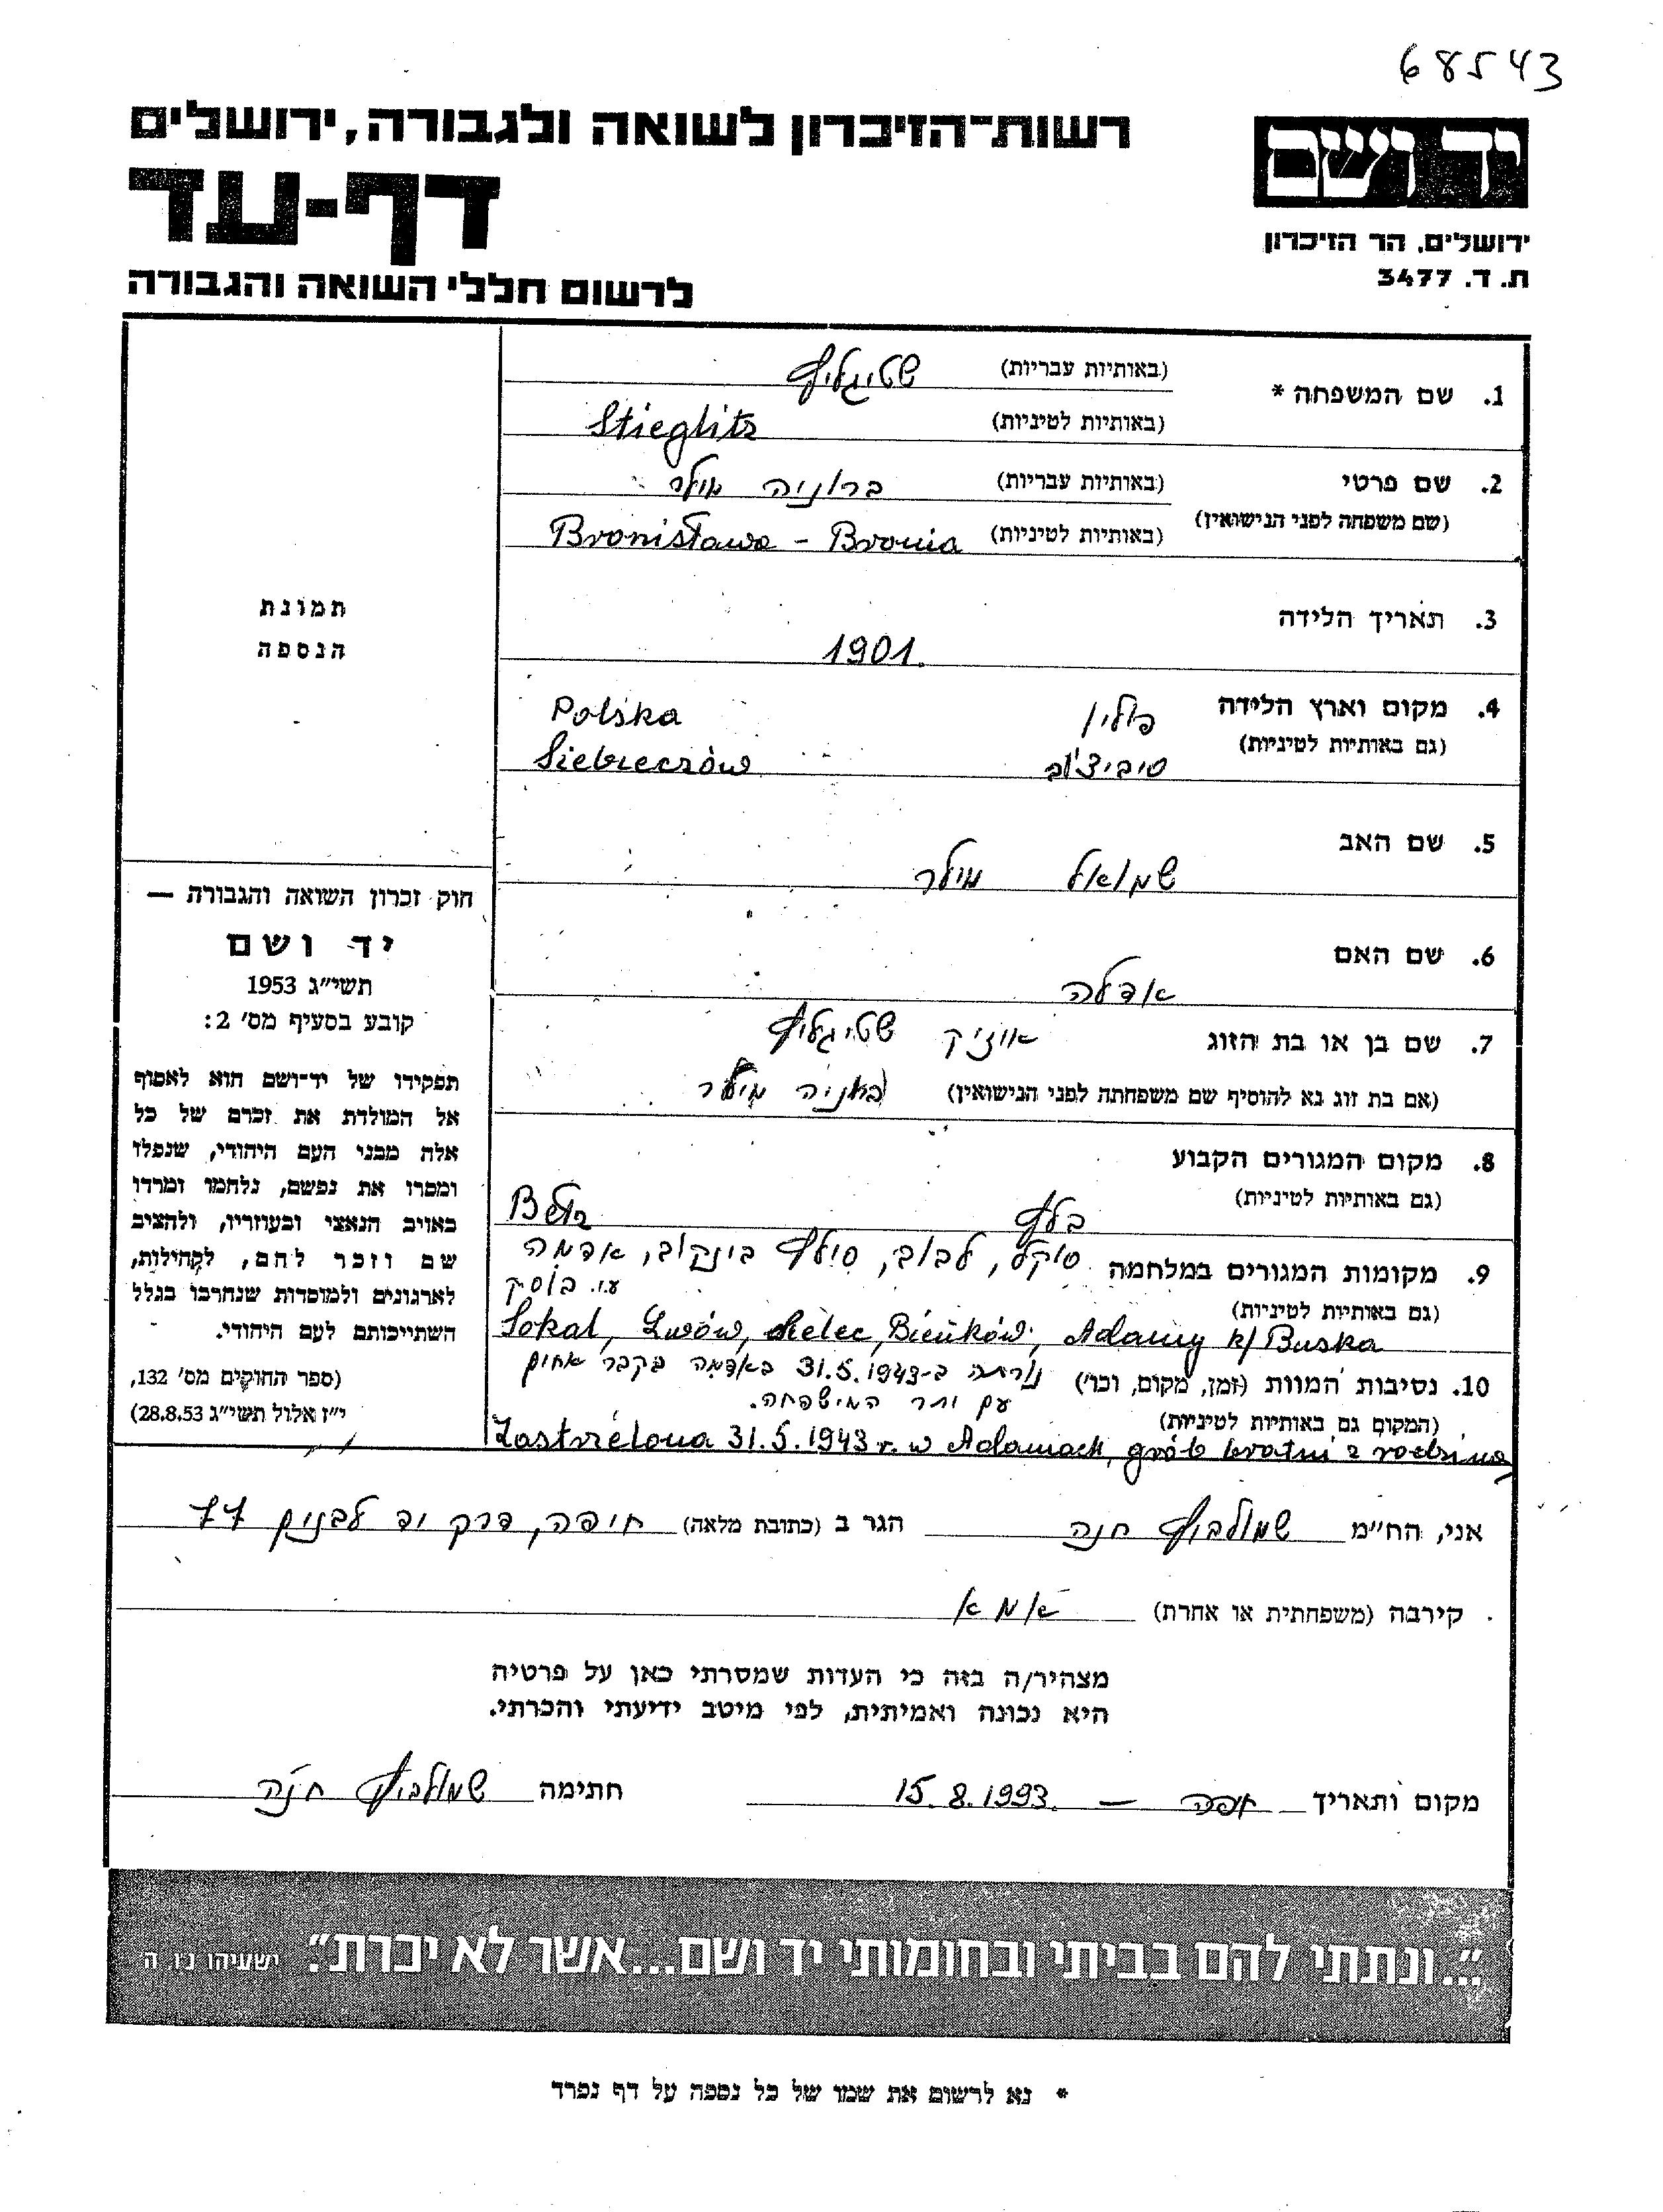 68543
רשות־הזיכרון לשואה ולגבורה, ירושלים
יד ושם
דף-עד
ירושלים, הר הזיכרון
ת. ד. 3477
לרשום חללי השואה והגבורה
1. שם המשפחה * (באותיות עבריות) שטיגליץ
(באותיות לטיניות) Stieglitz
2. שם פרטי (באותיות עבריות) ברוניה מילר
(שם משפחה לפני הנישואין) (באותיות לטיניות) Bronisława - Bronia
תמונת
הנספה
3. תאריך הלידה 1901.
4. מקום וארץ הלידה פולין Polska
(גם באותיות לטיניות) סיביצ'וב Siebieczów
5. שם האב שמואל מילר
6. שם האם אדלה
7. שם בן או בת הזוג איזיק שטיגליץ
(אם בת זוג נא להוסיף שם משפחתה לפני הנישואין) מילר
8. מקום המגורים הקבוע
(גם באותיות לטיניות) בלץ Bełz
9. מקומות המגורים במלחמה סוקל, לבוב, סילץ בינקוב, אדמה
(גם באותיות לטיניות) ע.י. בוסק
Sokal, Lwów, Sielec Bieńków, Adamy k/Buska
10. נסיבות המוות (זמן, מקום, וכו') נורתה ב-31.5.1943 באדמה בקבר אחים
עם יתר המישפחה.
(המקום גם באותיות לטיניות)
Zastrzelona 31.5.1943 r. w Adamach, grób bratni z rodziną
חוק זכרון השואה והגבורה —
יד ושם
תשי״ג 1953
קובע בסעיף מס' 2:
תפקידו של יד־ושם הוא לאסוף
אל המולדת את זכרם של כל
אלה מבני העם היהודי, שנפלו
ומסרו את נפשם, נלחמו ומרדו
באויב הנאצי ובעוזריו, ולהציב
שם וזכר להם, לקהילות,
לארגונים ולמוסדות שנחרבו בגלל
השתייכותם לעם היהודי.
(ספר החוקים מס' 132,
י״ז אלול תשי״ג 28.8.53)
אני, הח״מ שמולביץ חנה הגר ב (כתובת מלאה) חיפה, דרך יד לבנים 77
קירבה (משפחתית או אחרת) אמא
מצהיר/ה בזה כי העדות שמסרתי כאן על פרטיה
היא נכונה ואמיתית, לפי מיטב ידיעתי והכרתי.
מקום ותאריך חיפה — 15.8.1993. חתימה שמולביץ חנה
״...ונתתי להם בביתי ובחומותי יד ושם...אשר לא יכרת״. ישעיהו נ״ו, ה'
* נא לרשום את שמו של כל נספה על דף נפרד